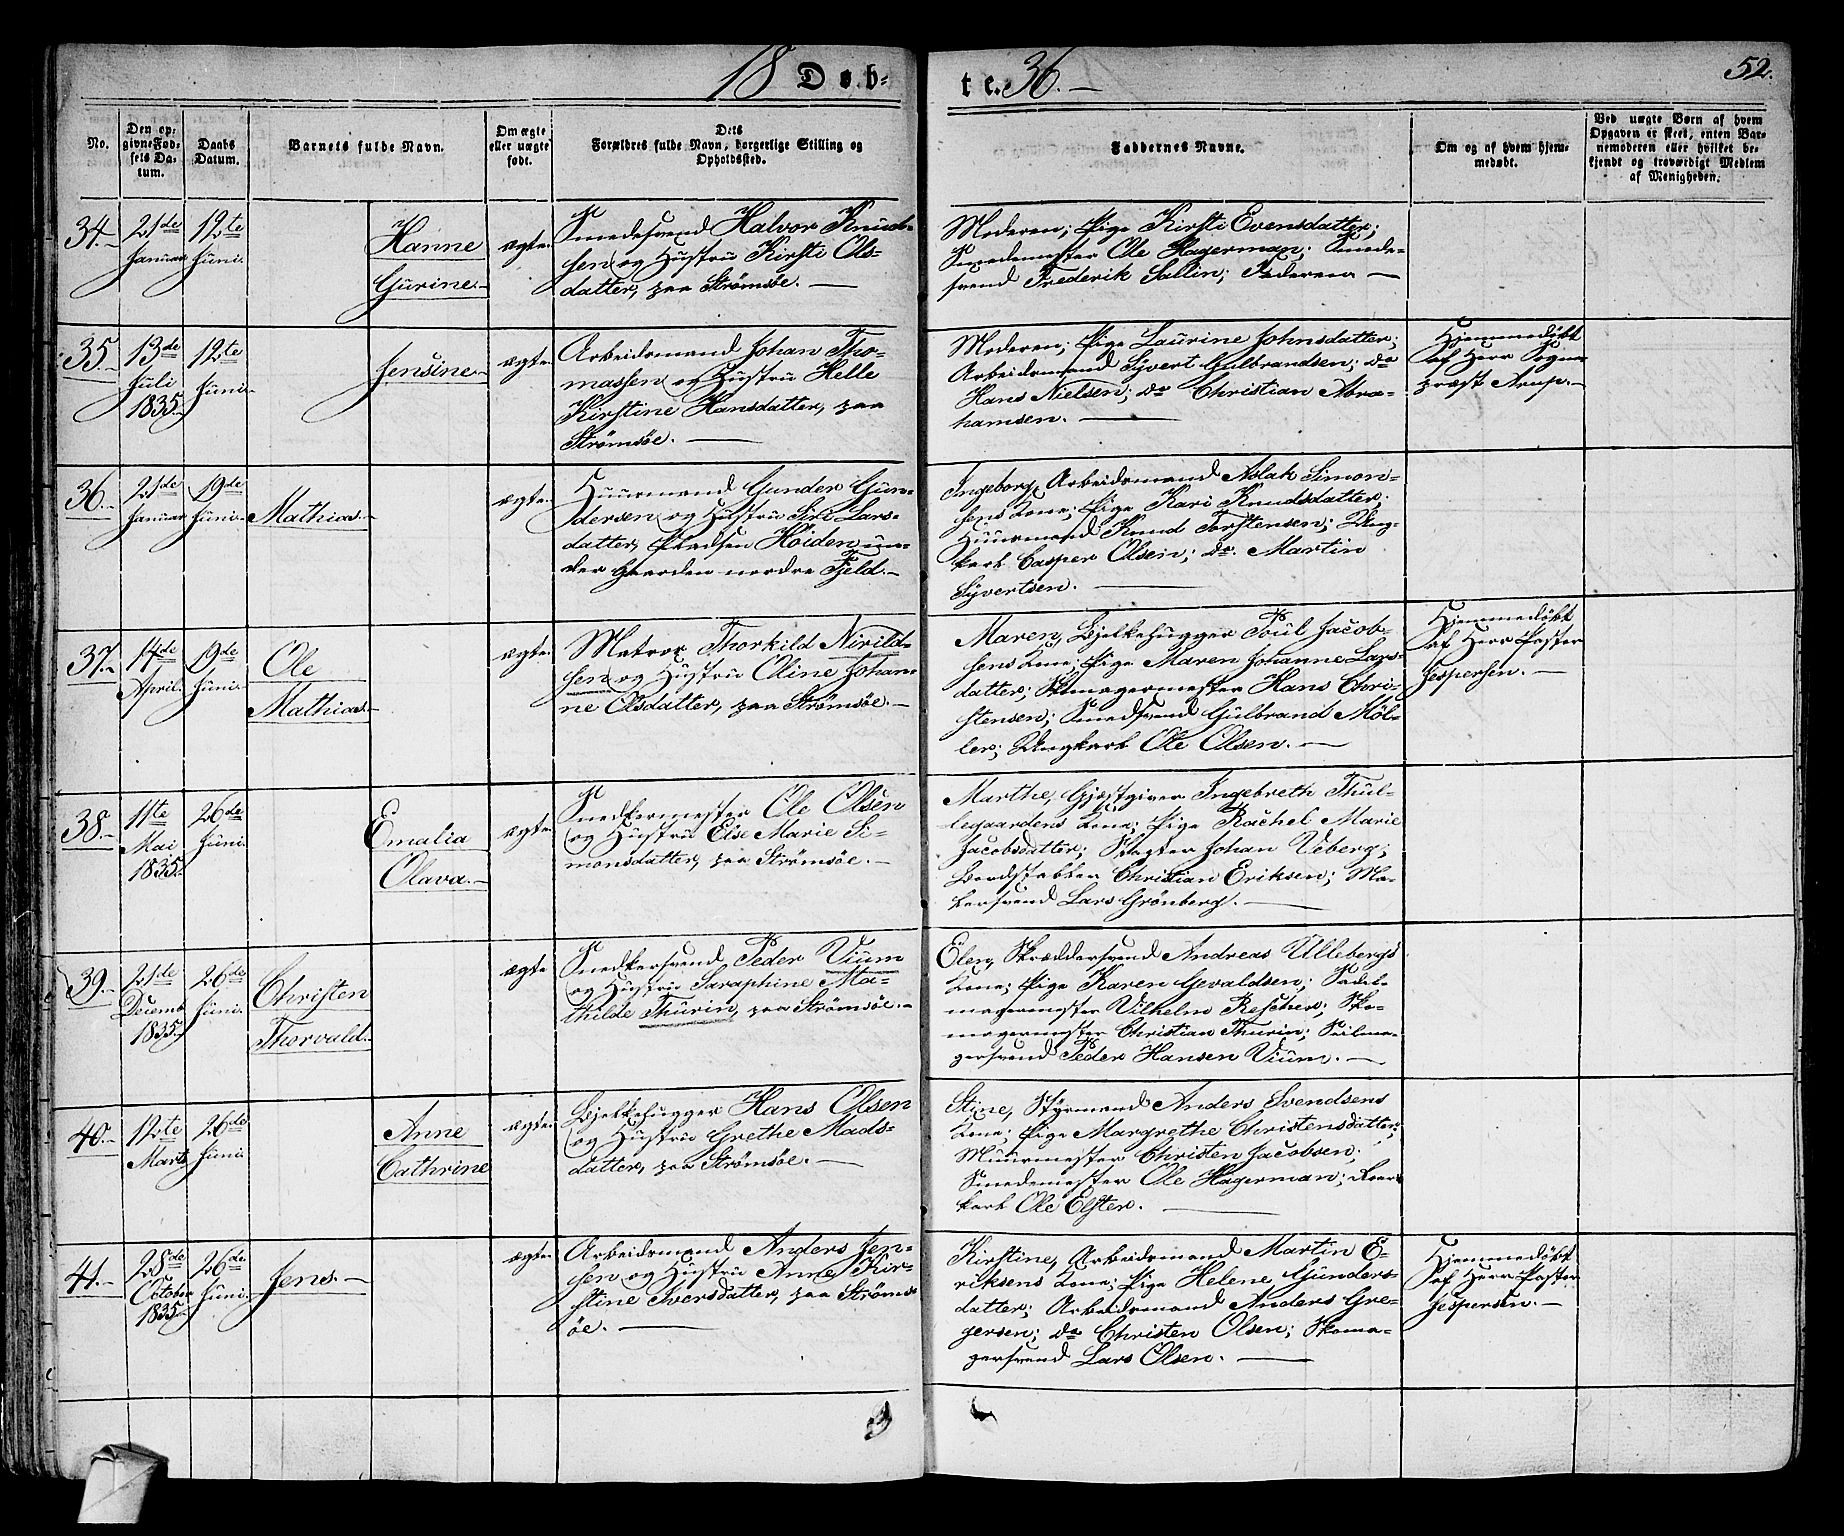 18 Døb-
te. 36.-
52.
No.
Den op-
givne Fød-
sels Da-
tum.
Daabs
Datum.
Barnets fulde Navn.
Om ægte
eller uægte
født.
Dets
Forældres fulde Navn, borgerlige Stilling og
Opholdssted.
Faddernes Navne.
Om og af hvem hjem-
medøbt.
Ved uægte Børn af hvem
Opgaven er skeet, enten Bar-
nemoderen eller hvilket be-
kjendt og troværdigt Medlem
af Menigheden.
34.-
21de
Januar
12te
Juni.
Hanne
Gurine.-
ægte.
Smedesvend Halvor Knud-
sen og Hustru Kirsti Ols-
datter, paa Strömsöe. —
Moderen; Pige Kirsti Evensdatter;
Smedemester Ole Hagerman; Smede-
svend Frederik Sallin; Faderen —
35.-
13de
Juli
1835.-
12te
Juni.-
Jensine.-
ægte.
Arbeidsmand Johan Tho-
massen og Hustru Helle
Kirstine Hansdatter, paa
Strömsöe. —
Moderen; Pige Laurine Johnsdatter;
Arbeidsmand Syvert Gulbrandsen; do
Hans Nielsen; do Christian Abra-
hamsen. —
Hjemmedöbt
af Herr Sogne-
præst Arup.-
36.-
21de
Januar
19de
Juni.-
Mathias.-
ægte.
Huusmand Gunder Gun-
dersen og Hustru Siri Lars-
datter, Pladsen Höiden un-
der Gaarden nordre Fjeld.-
Ingeborg, Arbeidsmand Aslak Simon-
sens Kone; Pige Kari Knudsdatter;
Huusmand Knud Torstensen; Ung-
karl Casper Olsen; do. Martin
Syvertsen. —
37.-
14de
April.
19de
Juni.-
Ole
Mathias.-
ægte.
Matros Thorkild Nirild-
sen og Hustru Oline Johan-
ne Olsdatter, paa Strömsöe.-
Maren, Bjelkehugger Poul Jacob-
sens Kone; Pige Maren Johanne Lars-
datter; Skomagermester Hans Chri-
stensen; Smedsvend Gulbrand Möl-
ler; Ungkarl Ole Olsen. —
Hjemmedöbt
af Herr Pastor
Jespersen. —
38.-
11te
Mai
1835.-
26de
Juni.
Emalia
Olava.-
ægte.
Snedkermester Ole Olsen
og Hustru Else Marie Si-
monsdatter, paa Strömsöe. —
Marthe, Gjæstgiver Ingebreth Thul-
legaardens Kone; Pige Rachel Marie
Jacobsdatter; Slagter Johan Veberg;
Bordstabler Christian Eriksen; Ma-
lersvend Lars Grönberg. —
39.-
21de
Decemb
1835.
26de
Juni.
Christen
Thorvald.-
ægte
Snedkersvend Peder Vium
og Hustru Saraphine Ma-
thilde Thurin, paa Strömsöe.-
Elen, Skræddersvend Andreas Ullebergs
Kone; Pige Karen Gevaldsen; Sadel-
magermester Vilhelm Rescher; Sko-
magermester Christian Thurin; Seilma-
gersvend Peder Hansen Vium. —
40.-
12te
Marts
26de
Juni.
Anne
Cathrine
ægte.
Bjelkehugger Hans Olsen
og Hustru Grethe Mads-
datter, paa Strömsöe. —
Stine, Styrmand Anders Svendsens
Kone; Pige Margrethe Christensdatter;
Muurmester Christen Jacobsen;
Smedemester Ole Hagerman;
karl Ole Elster. —
41.-
28de
October
1835.-
26de
Juni.-
Jens.-
ægte.
Arbeidsmand Anders Jen-
sen og Hustru Anne Kir-
stine Iversdatter, paa Ströms-
öe. —
Kirstine, Arbeidsmand Martin E-
riksens Kone; Pige Helene Gunders-
datter; Arbeidsmand Anders Gre-
gersen; do Christen Olsen; Skoma-
gersvend Lars Olsen. —
Hjemmedöbt
af Herr Pastor
Jespersen. —